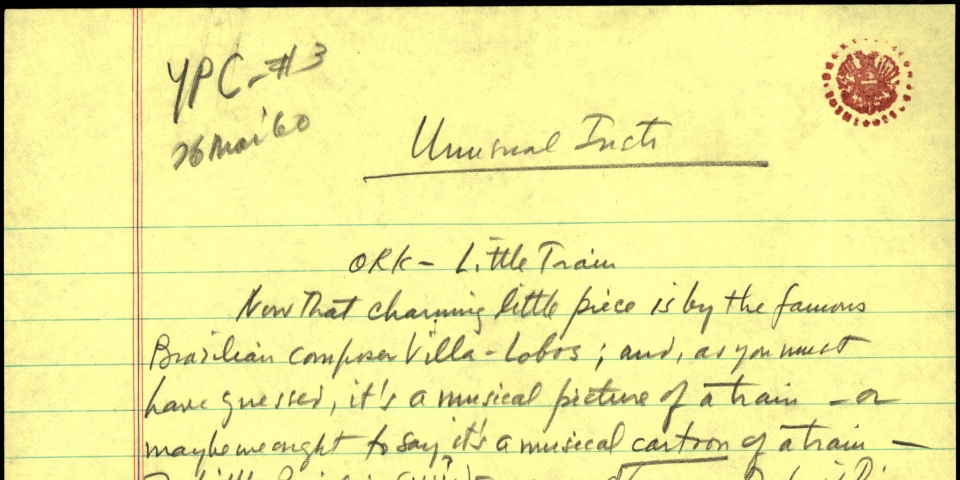 YPC-#3
26 Mar '60
Unusual Insts
ORK - Little Train
Now that charming little piece is by the famous
Brazilian composer Villa-Lobos; and, as you must
have guessed, it's a musical picture of a train - or
maybe we ought to say, it's a musical cartoon of a train -